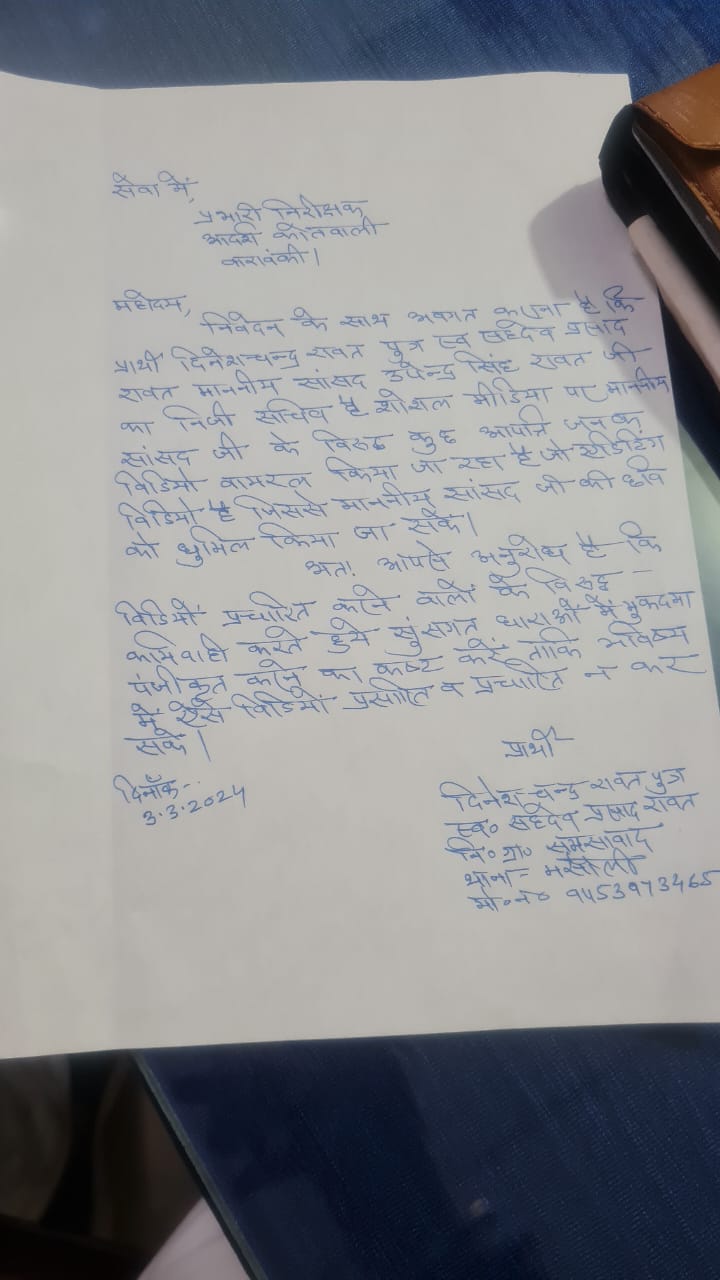 सेवा में,
प्रभारी निरीक्षक
आदर्श कोतवाली
बाराबंकी।
महोदय,
निवेदन के साथ अवगत कराना है कि
प्रार्थी दिनेश चन्द्र रावत पुत्र स्व सहदेव प्रसाद
रावत माननीय सांसद उपेन्द्र सिंह रावत जी
का निजी सचिव है शोशल मीडिया पर माननीय
सांसद जी के विरुद्ध कुछ आपत्ति जनक
विडियो वायरल किया जा रहा है जो एडीडिंग
विडियो है जिससे माननीय सांसद जी की छवि
को धुमिल किया जा सके।
अतः आपसे अनुरोध है कि
विडियों प्रचारित करने वालों के विरुद्ध
कार्यवाही करते हुये सुंसगत धाराओं में मुकदमा
पंजीकृत करने का कष्ट करें ताकि भविष्य
में ऐसे विडियों प्रसारित व प्रचारित न कर
सके।
प्रार्थी
दिनाँक--
3.3.2024
दिनेश चन्द्र रावत पुत्र
स्व० सहदेव प्रसाद रावत
नि० ग्रा० समसाबाद
थाना- मसौली
मो०न० 9453973465